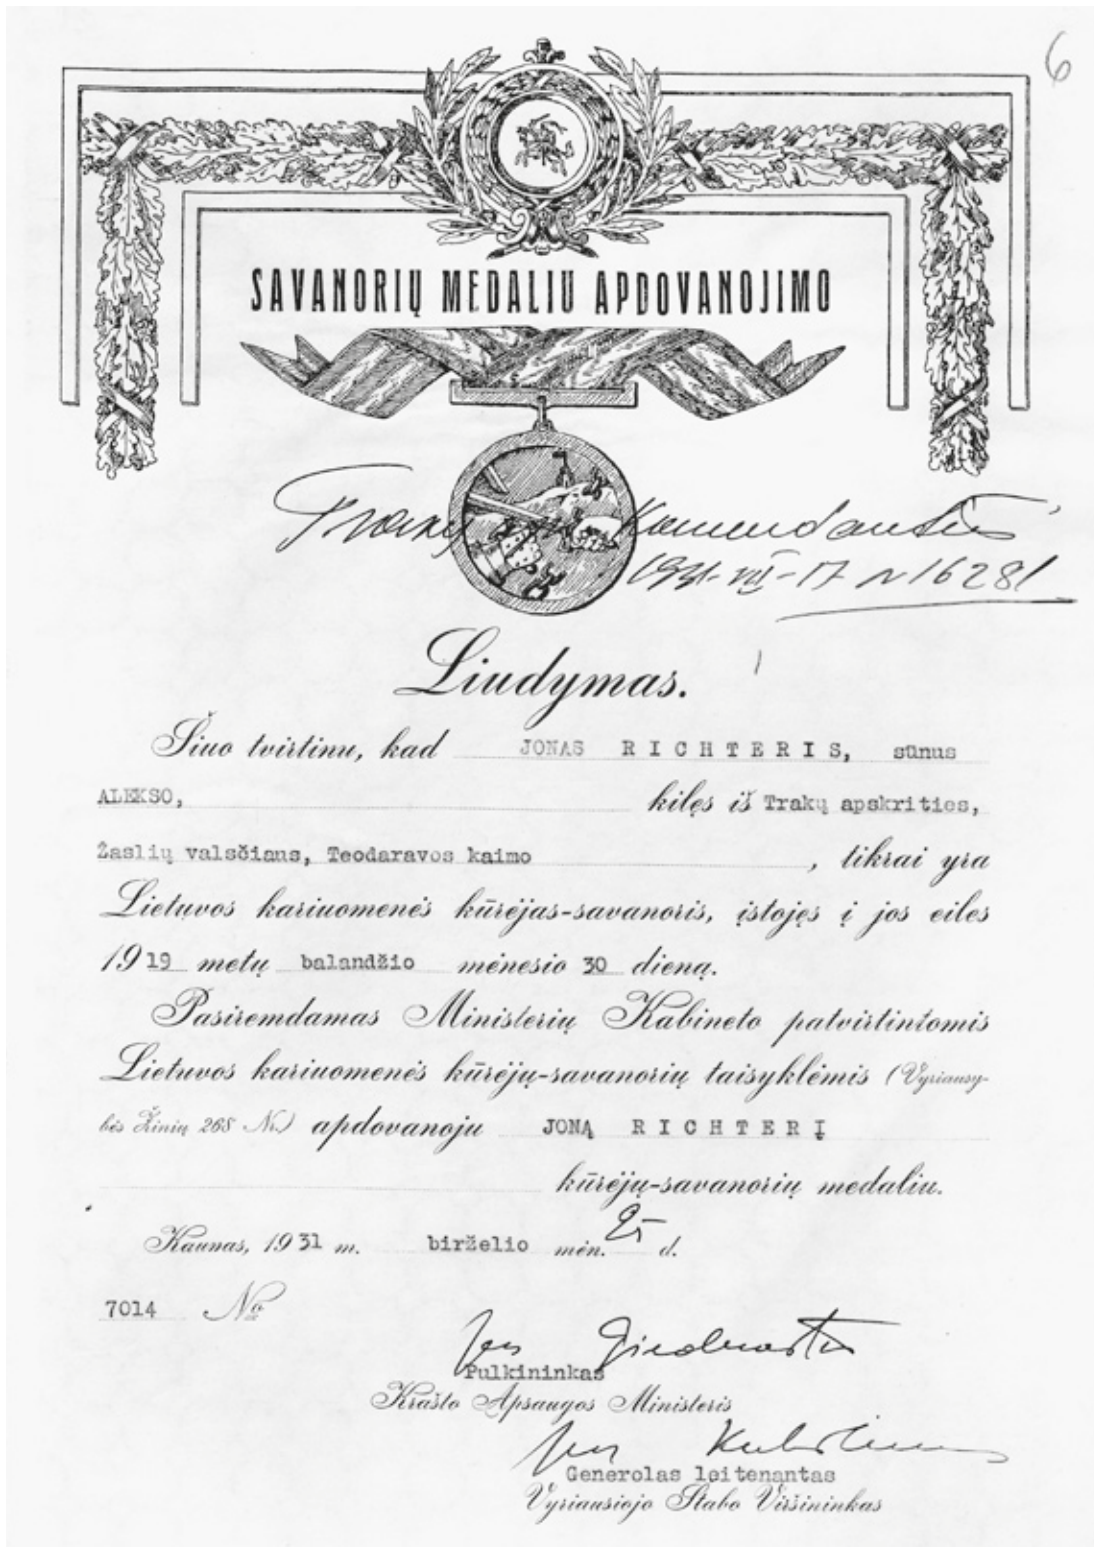 6
SAVANORIŲ MEDALIU APDOVANOJIMO
Trakų Komendantūs
1931-VII-17 N 16281
Liudymas.
Šiuo tvirtinu, kad JONAS RICHTERIS, sūnus
ALEKSO, kilęs iš Trakų apskrities,
Žaslių valsčiaus, Teodaravos kaimo , tikrai yra
Lietuvos kariuomenės kūrėjas-savanoris, įstojęs į jos eiles
1919 metų balandžio mėnesio 30 dieną.
Pasiremdamas Ministerių Kabineto patvirtintomis
Lietuvos kariuomenės kūrėjų-savanorių taisyklėmis (Vyriausy-
bės Žinių 268 Nr.) apdovanoju JONĄ RICHTERĮ
kūrėjų-savanorių medaliu.
Kaunas, 1931 m. birželio mėn. 25 d.
7014 No
Pulkininkas
Krašto Apsaugos Ministeris
Generolas leitenantas
Vyriausiojo Štabo Viršininkas